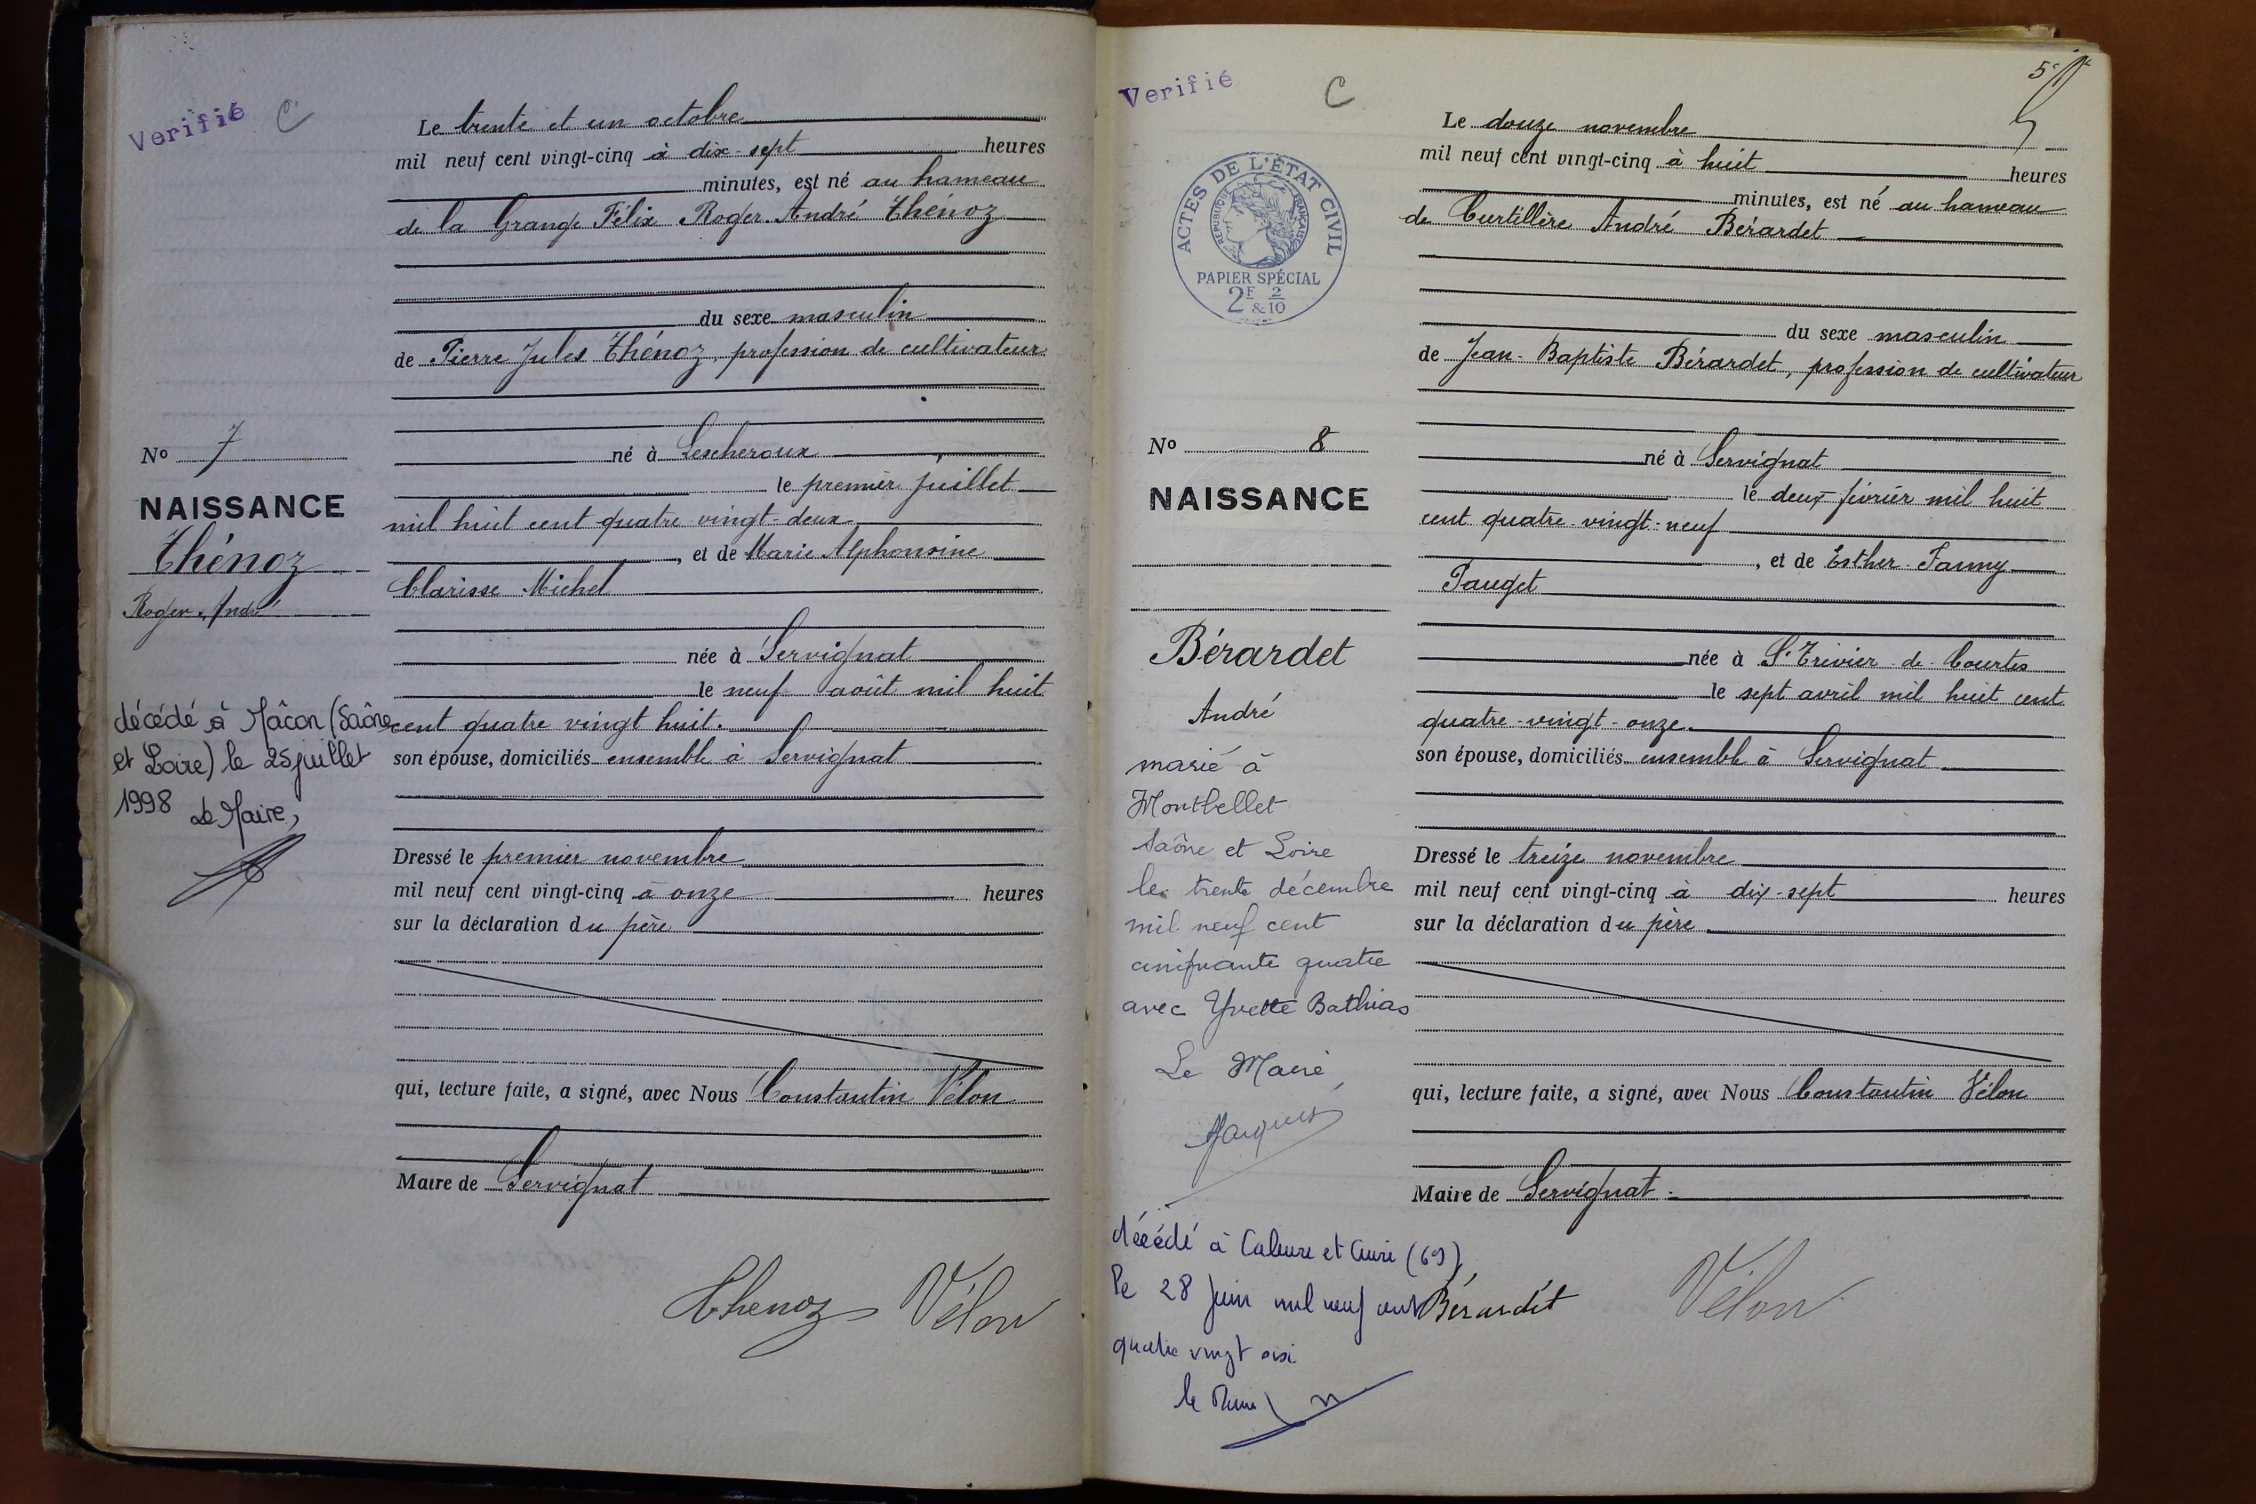 Verifié C
Le trente et un octobre
mil neuf cent vingt-cinq à dix-sept heures
minutes, est né au hameau
de la Grange Félix Roger André Thénoz
du sexe masculin
de Pierre Jules Thénoz, profession de cultivateur
né à Lescheroux
le premier juillet
mil huit cent quatre vingt-deux
, et de Marie Alphonsine
Clarisse Michel
née à Servignat
le neuf août mil huit
cent quatre vingt huit.
son épouse, domiciliés ensemble à Servignat
Dressé le premier novembre
mil neuf cent vingt-cinq à onze heures
sur la déclaration du père
qui, lecture faite, a signé, avec Nous Constantin Vélon
Maire de Servignat
Thenoz Vélon
No 7
NAISSANCE
Thénoz
Roger André
décédé à Mâcon (Saône
et Loire) le 25 juillet
1998 Le Maire,
Verifié C
5
ACTES DE L'ÉTAT CIVIL
RÉPUBLIQUE FRANÇAISE
PAPIER SPÉCIAL
2F & 2/10
Le douze novembre
mil neuf cent vingt-cinq à huit heures
minutes, est né au hameau
de Curtillère André Bérardet
du sexe masculin
de Jean-Baptiste Bérardet, profession de cultivateur
né à Servignat
le deux février mil huit
cent quatre vingt-neuf
, et de Esther Fanny
Pauget
née à St Trivier de Courtes
le sept avril mil huit cent
quatre-vingt-onze.
son épouse, domiciliés ensemble à Servignat
Dressé le treize novembre
mil neuf cent vingt-cinq à dix-sept heures
sur la déclaration du père
qui, lecture faite, a signé, avec Nous Constantin Vélon
Maire de Servignat.
Bérardet Vélon
No 8
NAISSANCE
Bérardet
André
marié à
Montbellet
Saône et Loire
le trente décembre
mil neuf cent
cinquante quatre
avec Yvette Bathias
Le Maire
décédé à Caluire et Cuire (69)
le 28 Juin mil neuf cent
quatre vingt
le Maire